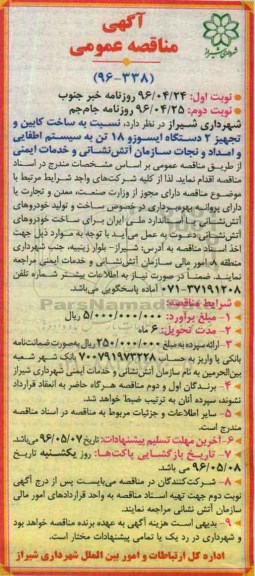 آگهی
مناقصه عمومی
(۹۶-۳۳۸)
نوبت اول: ۹۶/۰۴/۲۴ روزنامه خبر جنوب
نوبت دوم: ۹۶/۰۴/۲۵ روزنامه جام‌جم
شهرداری شیراز در نظر دارد، نسبت به ساخت کابین و
تجهیز ۲ دستگاه ایسوزو ۱۸ تن به سیستم اطفایی
و امداد و نجات سازمان آتش‌نشانی و خدمات ایمنی
از طریق مناقصه عمومی بر اساس مشخصات مندرج در اسناد
مناقصه اقدام نماید. لذا از کلیه شرکت‌های واجد شرایط مرتبط با
موضوع مناقصه دارای مجوز از وزارت صنعت، معدن و تجارت یا
دارای پروانه بهره‌برداری در خصوص ساخت و تولید خودروهای
آتش‌نشانی یا استاندارد ملی ایران برای ساخت خودروهای
آتش‌نشانی دعوت به عمل می‌آید با توجه به موارد ذیل جهت
اخذ اسناد مناقصه به آدرس: شیراز- بلوار زینبیه، جنب شهرداری
منطقه ۸ امور مالی سازمان آتش‌نشانی و خدمات ایمنی مراجعه
نمایند. ضمناً در صورت نیاز به اطلاعات بیشتر شماره تلفن
۰۷۱-۳۷۱۹۱۲۰۸ آماده پاسخگویی می‌باشد.
شرایط مناقصه:
۱- مبلغ برآورد: ۵/۰۰۰/۰۰۰/۰۰۰ ریال
۲- مدت تحویل: ۶ ماه
۳- ارائه سپرده به مبلغ ۲۵۰/۰۰۰/۰۰۰ ریال به‌صورت ضمانت‌نامه
بانکی یا واریز به حساب ۷۰۰۷۹۱۹۷۳۲۲۸ بانک شهر شعبه
بین‌الحرمین به نام سازمان آتش‌نشانی و خدمات ایمنی شهرداری شیراز
۴- برندگان اول و دوم مناقصه هرگاه حاضر به انعقاد قرارداد
نشوند، سپرده آنان به ترتیب ضبط خواهد شد.
۵- سایر اطلاعات و جزئیات مربوط به مناقصه در اسناد مناقصه
مندرج است.
۶- آخرین مهلت تسلیم پیشنهادات: تاریخ ۹۶/۰۵/۰۷ می‌باشد.
۷- تاریخ بازگشایی پاکت‌ها: روز یکشنبه تاریخ
۹۶/۰۵/۰۸ می باشد.
۸- شرکت‌کنندگان در مناقصه می‌بایست پس از درج آگهی
نوبت دوم جهت تهیه اسناد مناقصه به واحد قراردادهای امور مالی
سازمان آتش نشانی مراجعه نمایند.
۹- بدیهی است هزینه آگهی به عهده برنده مناقصه خواهد بود
و شهرداری در رد یک یا تمامی پیشنهادات مختار است.
اداره کل ارتباطات و امور بین الملل شهرداری شیراز